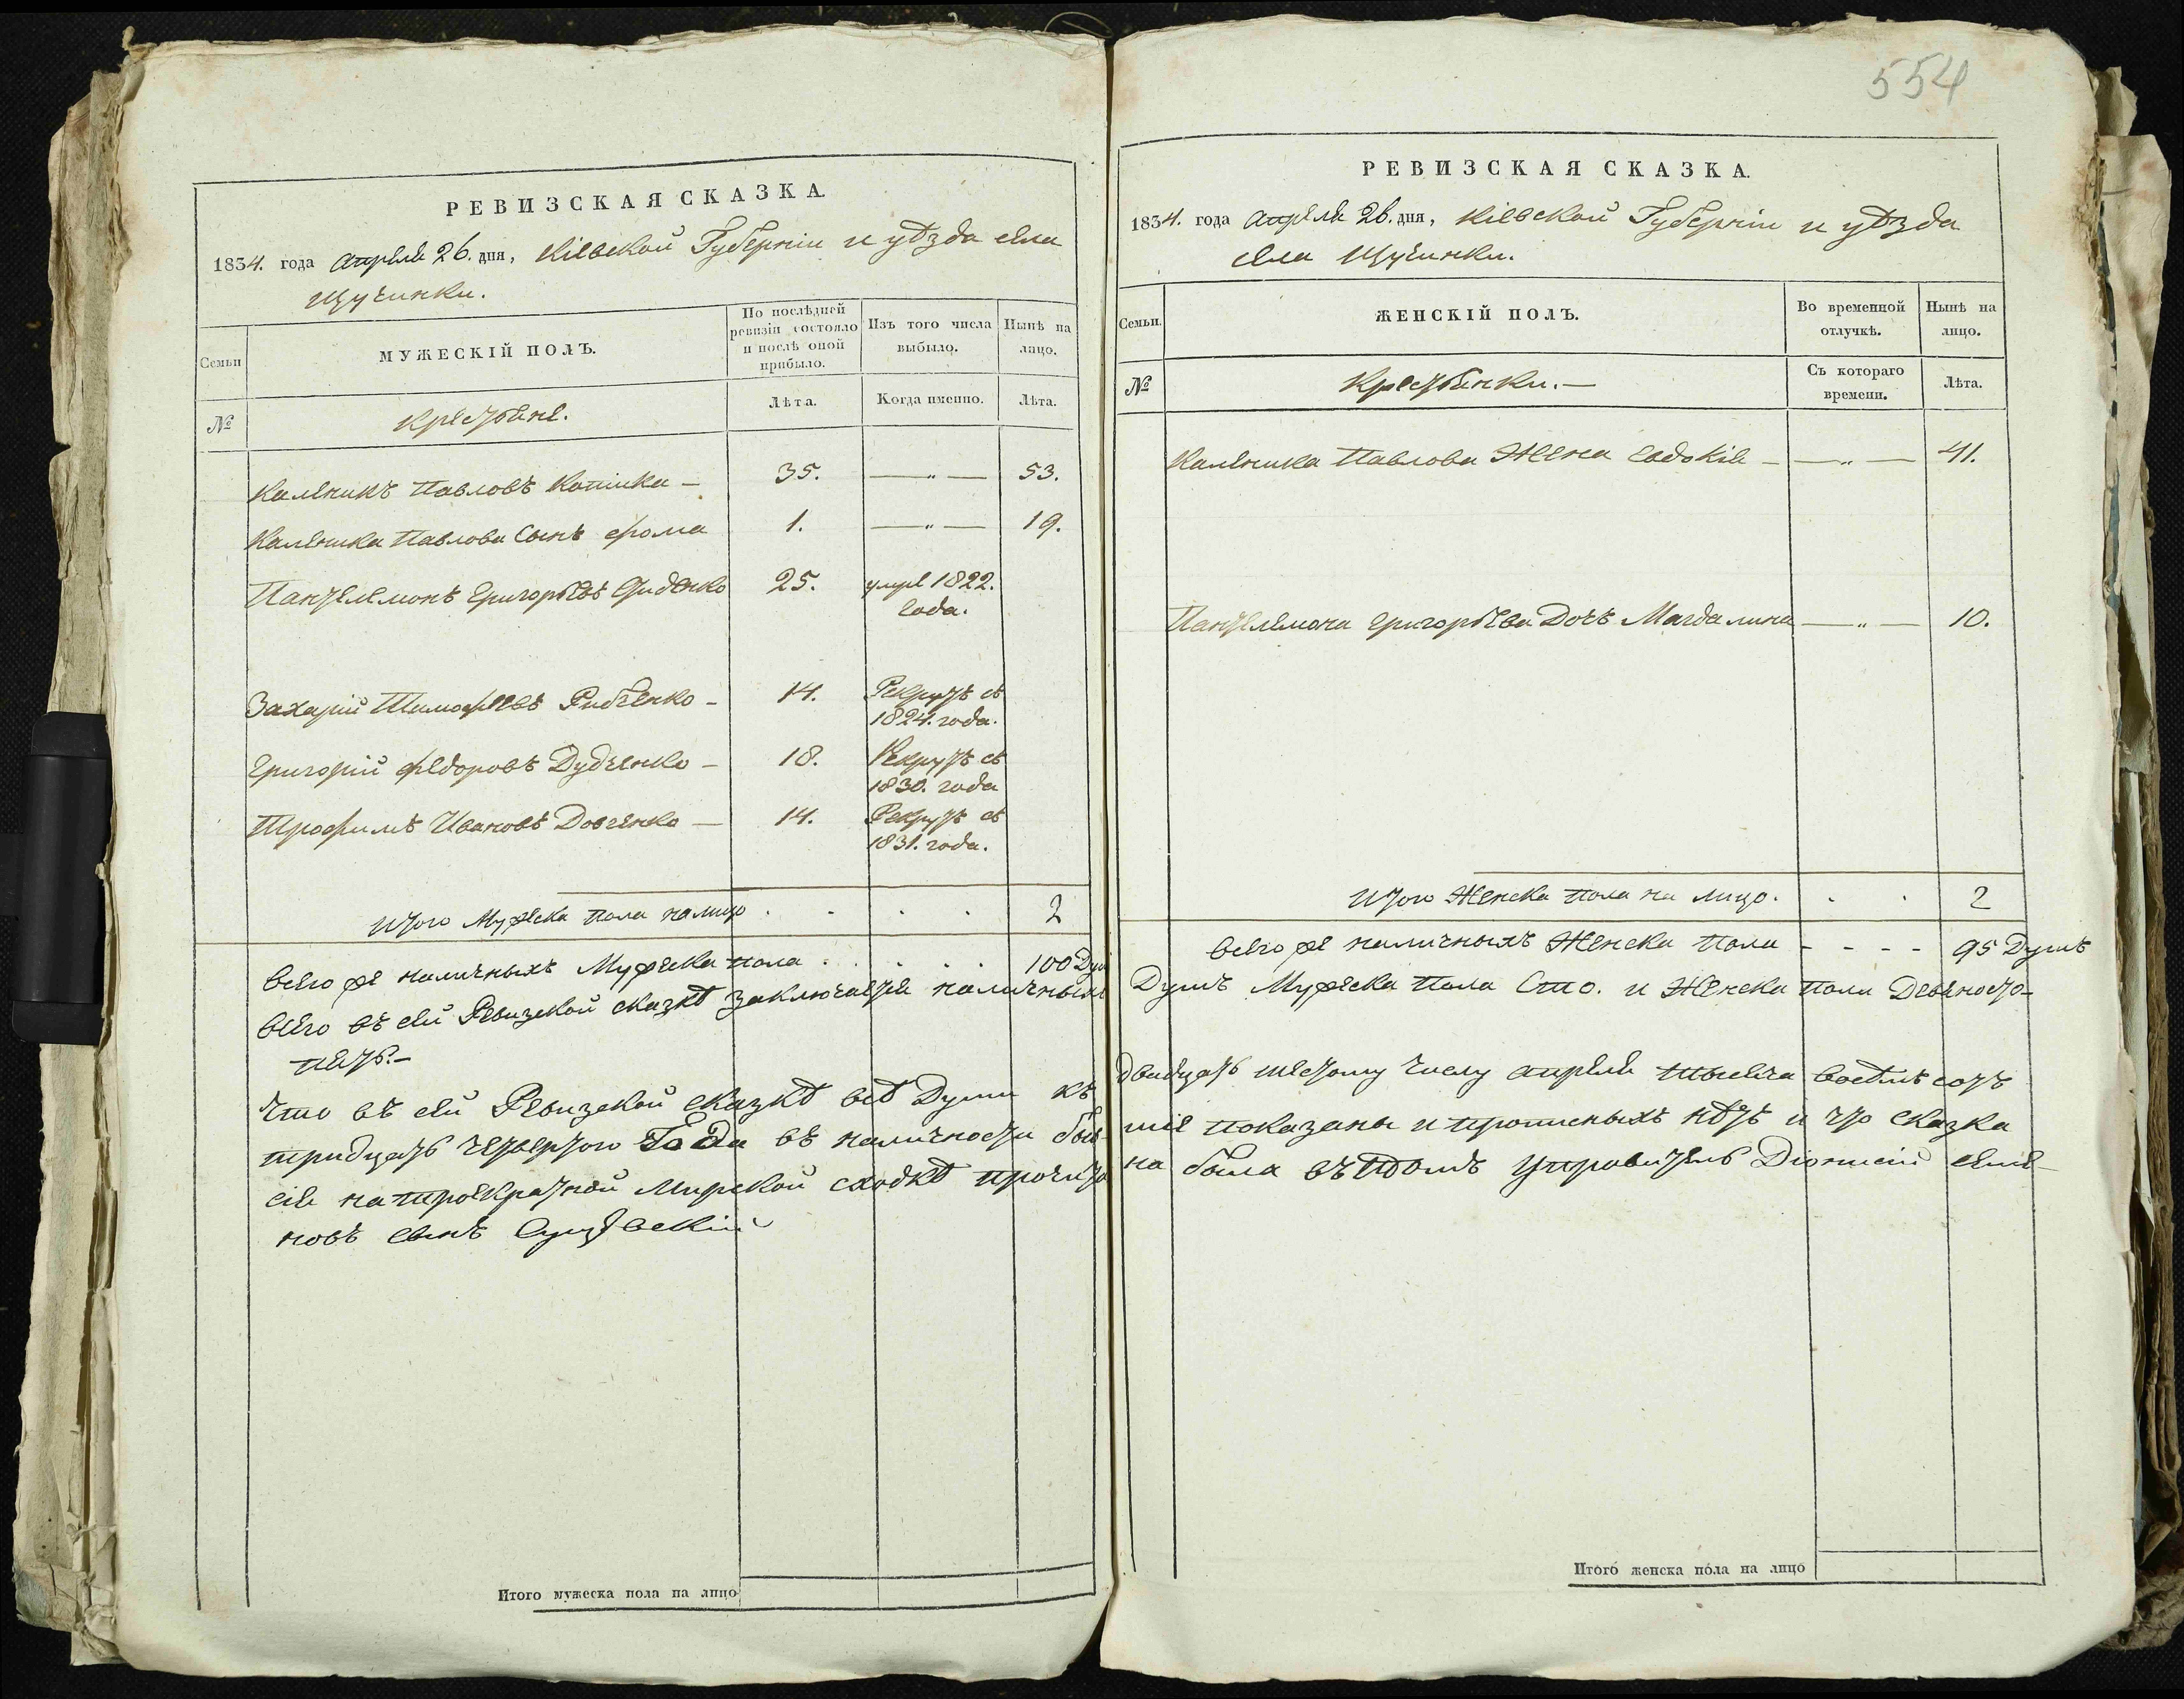 РЕВИЗСКАЯ СКАЗКА.
1834. года апреля 26. дня, Кіевской Губерніи и уѣзда села
Щучинки.
Семьи
МУЖЕСКІЙ ПОЛЪ.
По послѣдней
ревизіи состояло
и послѣ оной
прибыло.
Изъ того числа
выбыло.
Нынѣ на
лицо.
№
Крестьяне.
Лѣта.
Когда именно.
Лѣта.
Каленикъ Павловъ Копіика – 35. —„— 53.
Каленика Павлова Сынъ Фома 1. —„— 19.
Пантелемонъ Григорьевъ 25. умре 1822.
года.
Захарій Тимофеевъ Рибченко – 14. Рекрутъ съ
1824. года.
Григорій Федоровъ Дудченко – 18. Рекрутъ съ
1830. года
Трофимъ Ивановъ Довченко — 14. Рекрутъ съ
1831. года.
итого Мужеска пола налицо . . . . 2
всего же наличныхъ Мужеска пола . . . . . 100 Душ
всего въ сей Ревизской сказкѣ заключается наличныхъ
петь.–
что въ сей Ревизской сказкѣ всѣ Души къ
тридцать четвертого Года въ наличности быв-
сія натроекратной Мирской сходкѣ прочита
новъ сынъ
Итого мужеска пола на лицо
554
РЕВИЗСКАЯ СКАЗКА.
1834. года апреля 26. дня, Кіевской Губерніи и уѣзда
села Щучинки.
Семьи.
ЖЕНСКІЙ ПОЛЪ.
Во временной
отлучкѣ.
Нынѣ на
лицо.
№
Крестьянки.—
Съ котораго
времени.
Лѣта.
Каленика Павлова Жена Евдокія – —„— 41.
Пантелемона Григорьева Дочъ Магдалина —„— 10.
итого Женска пола на лицо. . . 2
всего же наличныхъ Женска пола - - - - 95 Душъ
Душъ Мужеска пола Сто. и Женска пола Девеносто-
двадцать шестому числу апреля тысеча восемъ сотъ
шіе показаны и прописныхъ нѣтъ и что сказка
на была вѣ томъ управитель Діонисій семе-
Итого женска пола на лицо